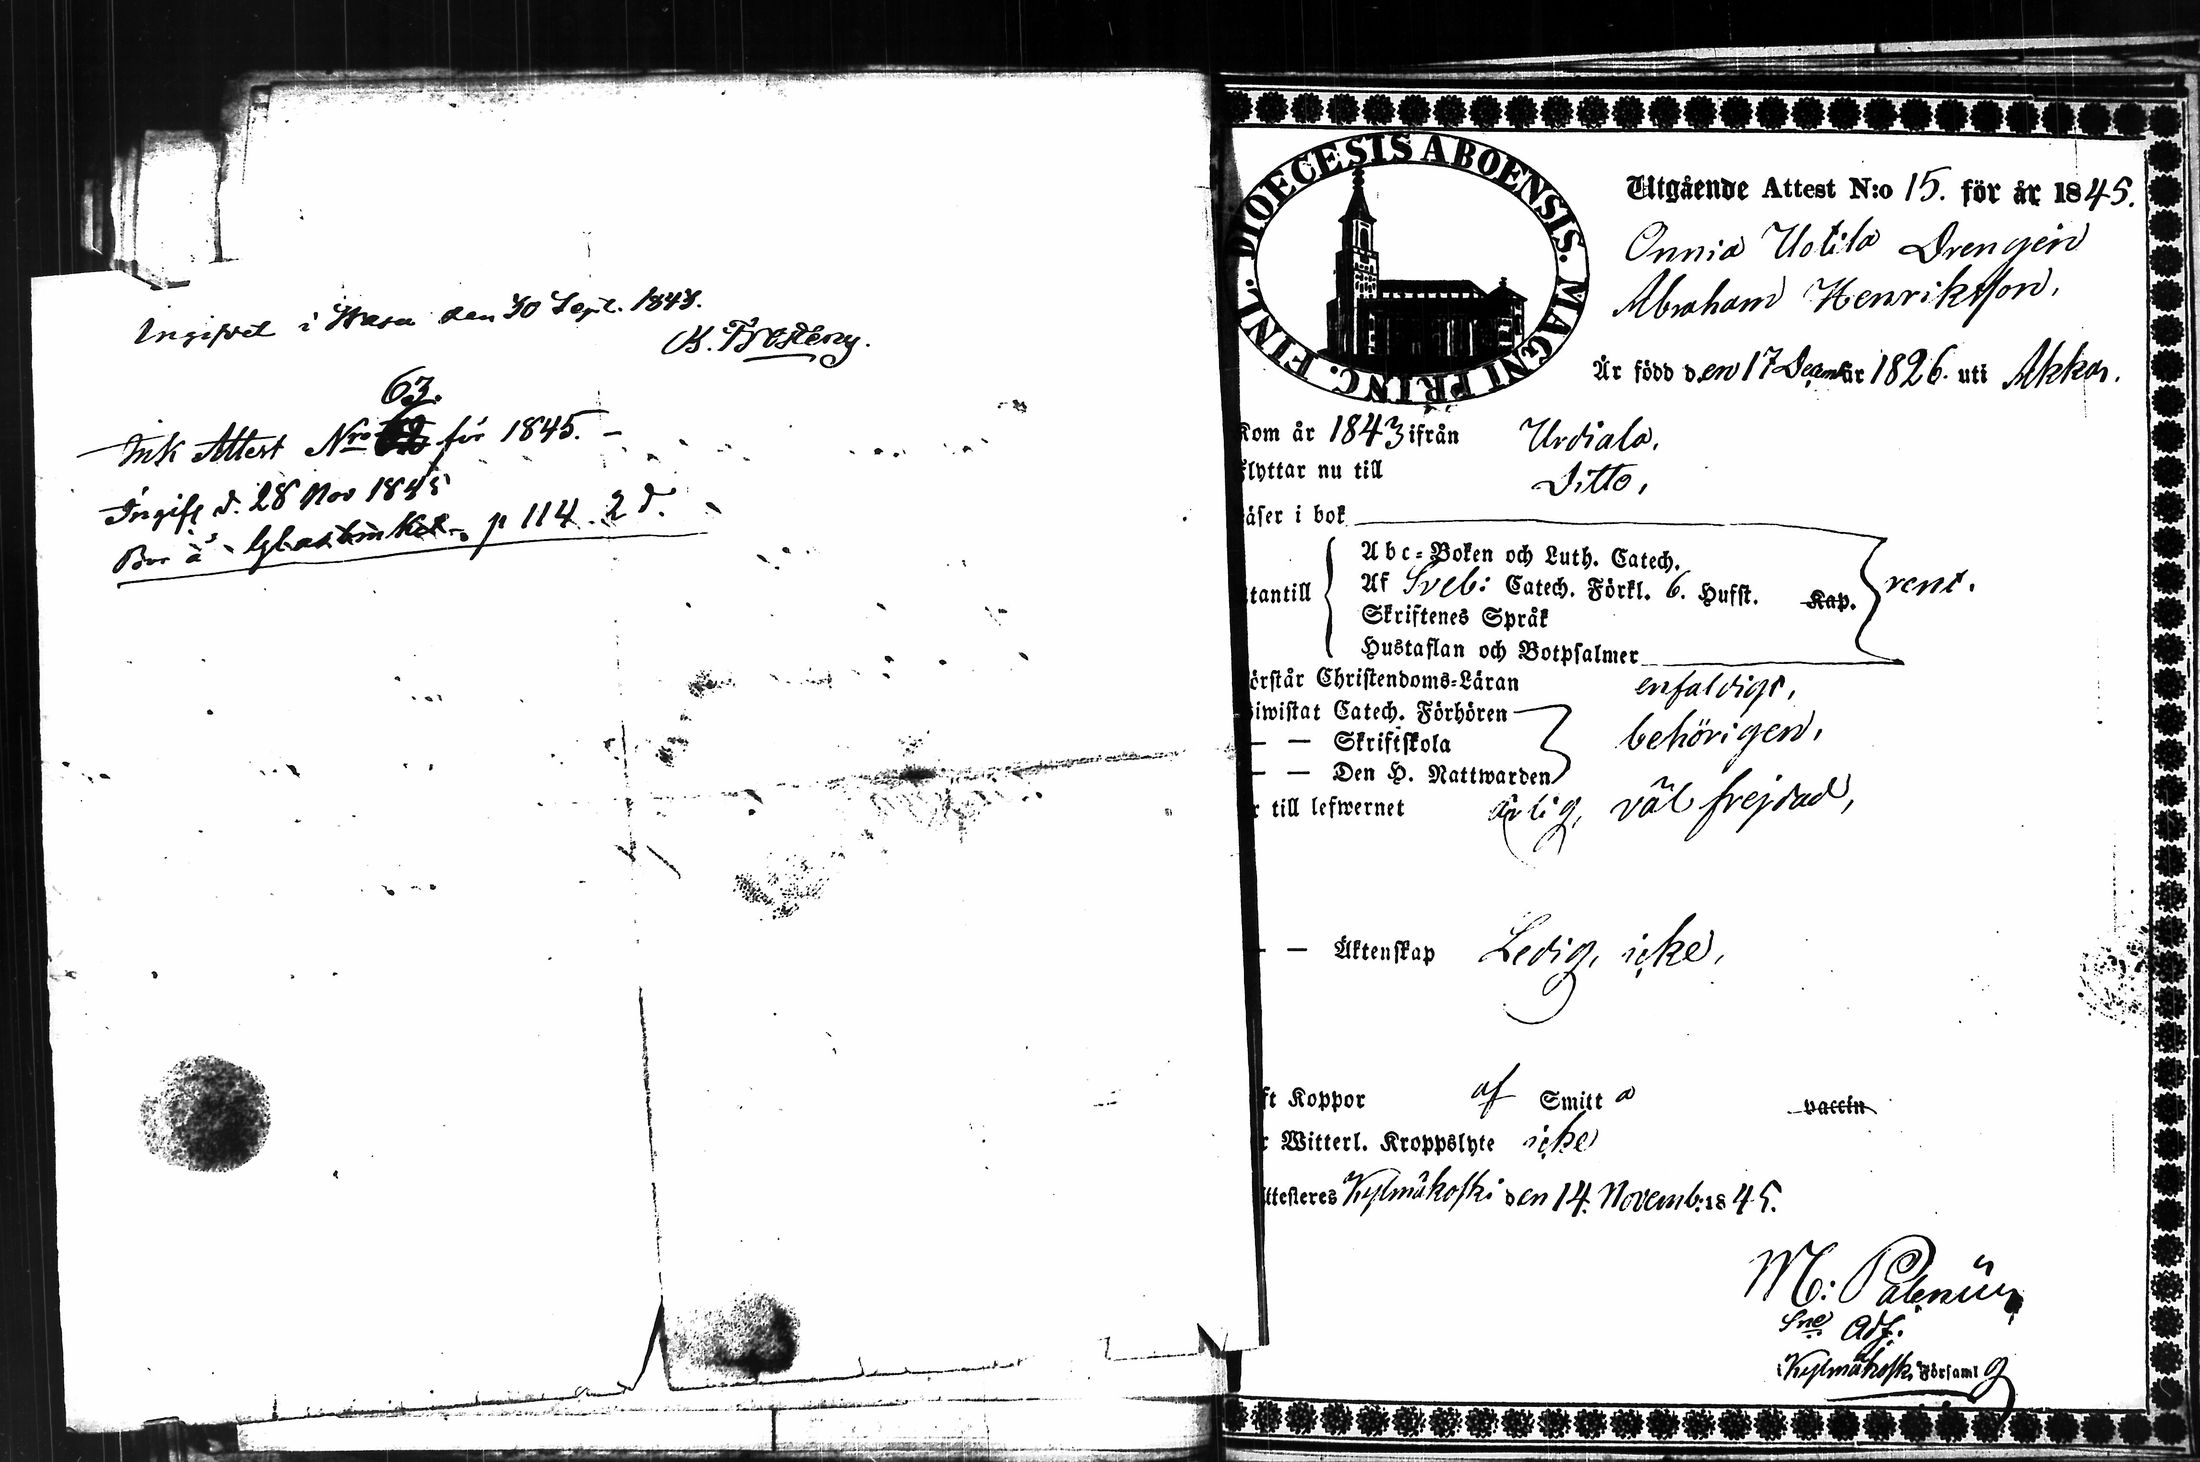 Ingifvet i Wasa den 30 Sept. 1843.
63.
Ink Attest Nro för 1845. –
Ingift d. 28 Nov 1845
Bor å Glasbruket p 114. 2 d.
DIOECESIS ABOENSIS. MAGNI PRINC. FINL.
Utgående Attest N:o 15. för år 1845.
Onnia Uotila Drengen
Abraham Henriksson,
Är född den 17 Decemb år 1826. uti Akkas.
Kom år 1843 ifrån Urdiala,
flyttar nu till Ditto,
läser i bok
utantill
Abc-Boken och Luth. Catech.
Af Sveb: Catech. Förkl. 6. Hufst. Kap.
Skriftenes Språk
Hustaflan och Botpsalmer
rent.
örstår Christendoms-Läran enfaldigt,
biwistat Catech. Förhören
– – Skriftskola behörigen,
– – Den H. Nattwarden
r till lefwernet ärlig, väl frejdad,
– – Äktenskap Ledig, icke,
ft Koppor af Smitta vaccin
r Witterl. Kroppslyte icke
Attesteres Kylmäkoski den 14. Novemb: 1845.
M:
Sne Adj.
i Kylmäkoski Församlg